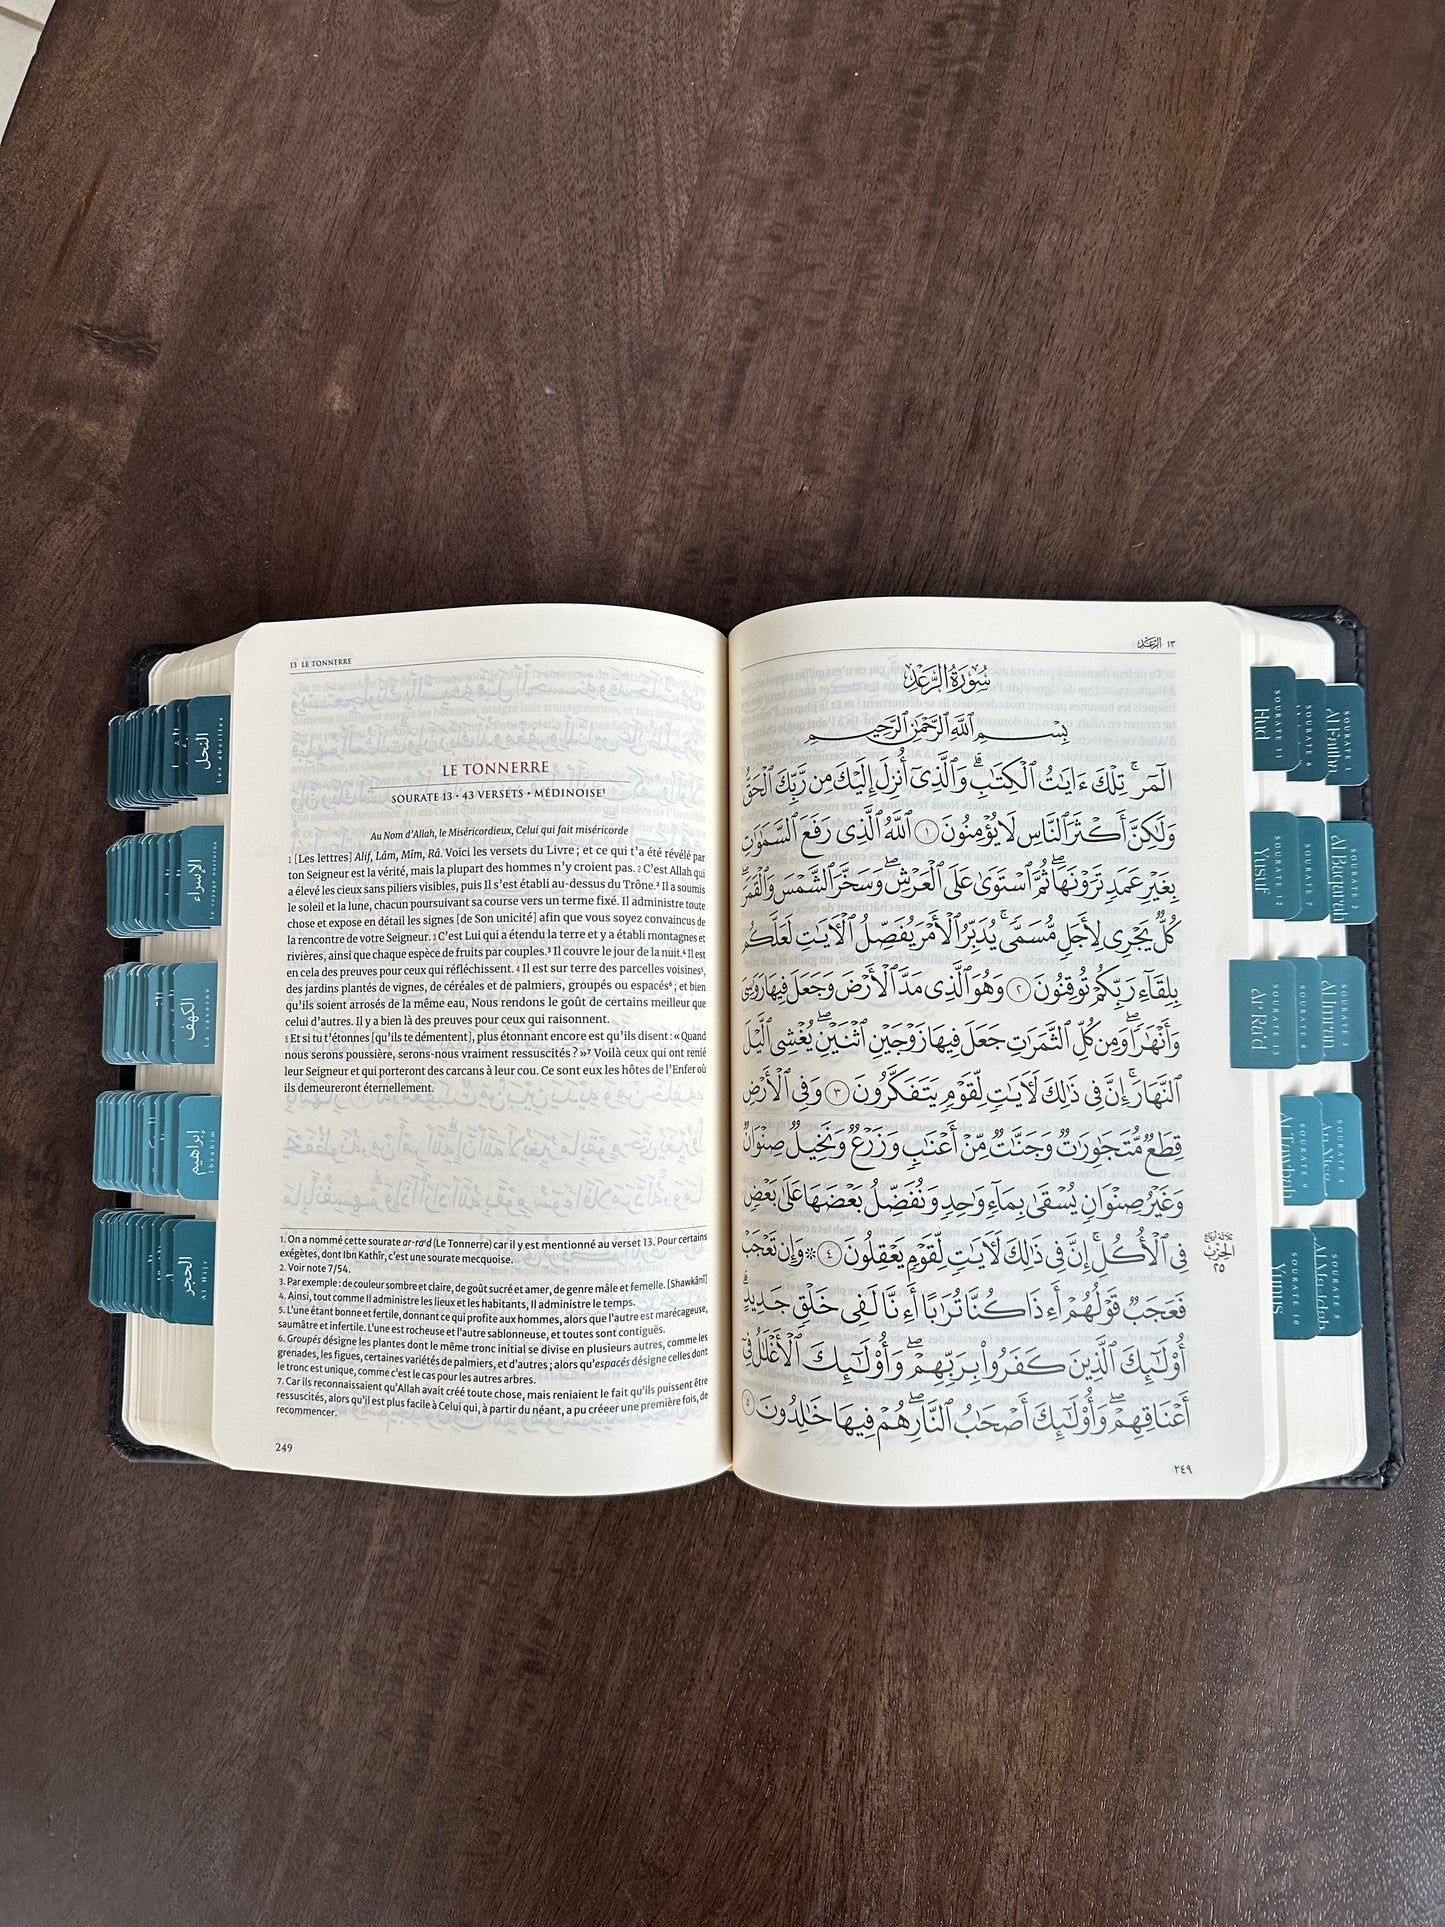 13 LE TONNERRE
LE TONNERRE
SOURATE 13 • 43 VERSETS • MÉDINOISE¹
Au Nom d'Allah, le Miséricordieux, Celui qui fait miséricorde
1 [Les lettres] Alif, Lâm, Mîm, Râ. Voici les versets du Livre ; et ce qui t'a été révélé par
ton Seigneur est la vérité, mais la plupart des hommes n'y croient pas. 2 C'est Allah qui
a élevé les cieux sans piliers visibles, puis Il s'est établi au-dessus du Trône.² Il a soumis
le soleil et la lune, chacun poursuivant sa course vers un terme fixé. Il administre toute
chose et expose en détail les signes [de Son unicité] afin que vous soyez convaincus de
la rencontre de votre Seigneur. 3 C'est Lui qui a étendu la terre et y a établi montagnes et
rivières, ainsi que chaque espèce de fruits par couples.³ Il couvre le jour de la nuit.⁴ Il est
en cela des preuves pour ceux qui réfléchissent. 4 Il est sur terre des parcelles voisines⁵,
des jardins plantés de vignes, de céréales et de palmiers, groupés ou espacés⁶ ; et bien
qu'ils soient arrosés de la même eau, Nous rendons le goût de certains meilleur que
celui d'autres. Il y a bien là des preuves pour ceux qui raisonnent.
5 Et si tu t'étonnes [qu'ils te démentent], plus étonnant encore est qu'ils disent : « Quand
nous serons poussière, serons-nous vraiment ressuscités ? »⁷ Voilà ceux qui ont renié
leur Seigneur et qui porteront des carcans à leur cou. Ce sont eux les hôtes de l'Enfer où
ils demeureront éternellement.
1. On a nommé cette sourate ar-ra'd (Le Tonnerre) car il y est mentionné au verset 13. Pour certains
exégètes, dont Ibn Kathîr, c'est une sourate mecquoise.
2. Voir note 7/54.
3. Par exemple : de couleur sombre et claire, de goût sucré et amer, de genre mâle et femelle. [Shawkânî]
4. Ainsi, tout comme Il administre les lieux et les habitants, Il administre le temps.
5. L'une étant bonne et fertile, donnant ce qui profite aux hommes, alors que l'autre est marécageuse,
saumâtre et infertile. L'une est rocheuse et l'autre sablonneuse, et toutes sont contiguës.
6. Groupés désigne les plantes dont le même tronc initial se divise en plusieurs autres, comme les
grenades, les figues, certaines variétés de palmiers, et d'autres ; alors qu'espacés désigne celles dont
le tronc est unique, comme c'est le cas pour les autres arbres.
7. Car ils reconnaissaient qu'Allah avait créé toute chose, mais reniaient le fait qu'ils puissent être
ressuscités, alors qu'il est plus facile à Celui qui, à partir du néant, a pu créer une première fois, de
recommencer.
249
١٣ الرَّعْد
سُورَةُ الرَّعْدِ
بِسْمِ ٱللَّهِ ٱلرَّحْمَٰنِ ٱلرَّحِيمِ
الٓمٓر ۚ تِلْكَ ءَايَٰتُ ٱلْكِتَٰبِ ۗ وَٱلَّذِىٓ أُنزِلَ إِلَيْكَ مِن رَّبِّكَ ٱلْحَقُّ
وَلَٰكِنَّ أَكْثَرَ ٱلنَّاسِ لَا يُؤْمِنُونَ ١ ٱللَّهُ ٱلَّذِى رَفَعَ ٱلسَّمَٰوَٰتِ
بِغَيْرِ عَمَدٍ تَرَوْنَهَا ۖ ثُمَّ ٱسْتَوَىٰ عَلَى ٱلْعَرْشِ ۖ وَسَخَّرَ ٱلشَّمْسَ وَٱلْقَمَرَ ۖ
كُلٌّ يَجْرِى لِأَجَلٍ مُّسَمًّى ۚ يُدَبِّرُ ٱلْأَمْرَ يُفَصِّلُ ٱلْءَايَٰتِ لَعَلَّكُم
بِلِقَآءِ رَبِّكُمْ تُوقِنُونَ ٢ وَهُوَ ٱلَّذِى مَدَّ ٱلْأَرْضَ وَجَعَلَ فِيهَا رَوَٰسِىَ
وَأَنْهَٰرًا ۖ وَمِن كُلِّ ٱلثَّمَرَٰتِ جَعَلَ فِيهَا زَوْجَيْنِ ٱثْنَيْنِ ۖ يُغْشِى ٱلَّيْلَ
ٱلنَّهَارَ ۚ إِنَّ فِى ذَٰلِكَ لَءَايَٰتٍ لِّقَوْمٍ يَتَفَكَّرُونَ ٣ وَفِى ٱلْأَرْضِ
قِطَعٌ مُّتَجَٰوِرَٰتٌ وَجَنَّٰتٌ مِّنْ أَعْنَٰبٍ وَزَرْعٌ وَنَخِيلٌ صِنْوَانٌ
وَغَيْرُ صِنْوَانٍ يُسْقَىٰ بِمَآءٍ وَٰحِدٍ وَنُفَضِّلُ بَعْضَهَا عَلَىٰ بَعْضٍ
فِى ٱلْأُكُلِ ۚ إِنَّ فِى ذَٰلِكَ لَءَايَٰتٍ لِّقَوْمٍ يَعْقِلُونَ ٤ ۞ وَإِن تَعْجَبْ
فَعَجَبٌ قَوْلُهُمْ أَءِذَا كُنَّا تُرَٰبًا أَءِنَّا لَفِى خَلْقٍ جَدِيدٍ ۗ
أُو۟لَٰٓئِكَ ٱلَّذِينَ كَفَرُوا۟ بِرَبِّهِمْ ۖ وَأُو۟لَٰٓئِكَ ٱلْأَغْلَٰلُ فِىٓ
أَعْنَاقِهِمْ ۖ وَأُو۟لَٰٓئِكَ أَصْحَٰبُ ٱلنَّارِ ۖ هُمْ فِيهَا خَٰلِدُونَ ٥
الحزب
٢٥
٢٤٩
النحل
Les abeilles
الإسراء
Le voyage nocturne
الكهف
La caverne
إبراهيم
Ibrahim
الحجر
Al Hijr
SOURATE 11
Hud
SOURATE 6
SOURATE 1
Al Fatiha
SOURATE 12
Yusuf
SOURATE 7
SOURATE 2
al Baqarah
SOURATE 13
ar-Ra'd
SOURATE 8
SOURATE 3
Al Imran
SOURATE 9
At Tawbah
SOURATE 4
An Nisa
SOURATE 10
Yunus
SOURATE 5
Al Maidah